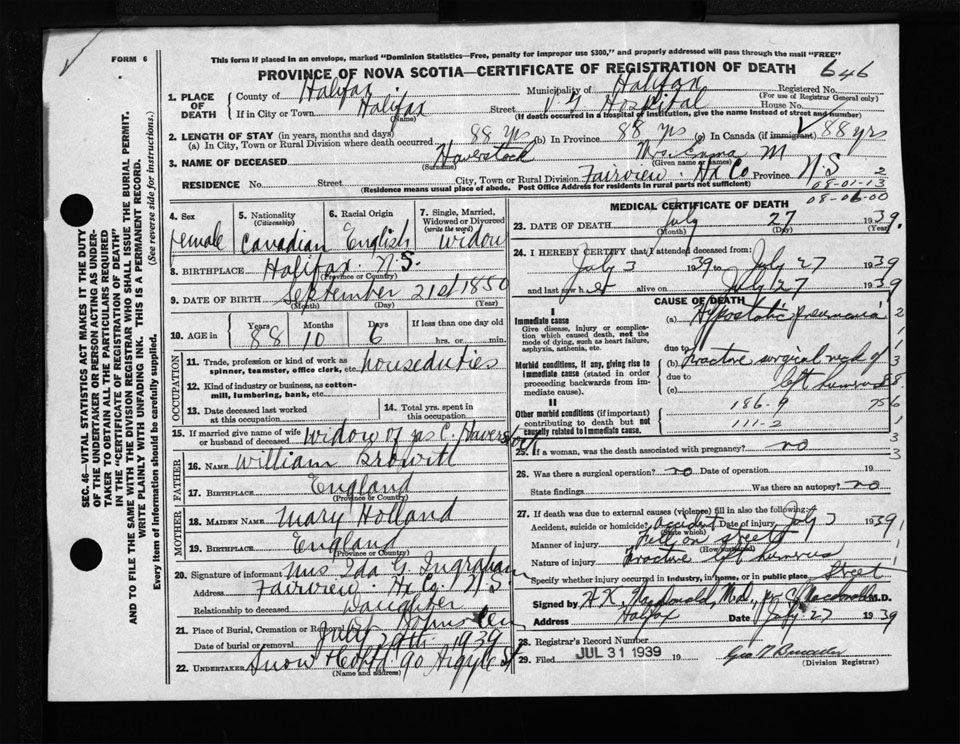 FORM 6
This form if placed in an envelope, marked "Dominion Statistics—Free, penalty for improper use $300," and properly addressed will pass through the mail "FREE"
PROVINCE OF NOVA SCOTIA—CERTIFICATE OF REGISTRATION OF DEATH 646
1. PLACE OF DEATH
County of Halifax Municipality of Halifax Registered No.
(For use of Registrar General only)
If in City or Town Halifax Street V G Hospital House No.
(Name) (If death occurred in a hospital or institution, give the name instead of street and number)
2. LENGTH OF STAY (in years, months and days)
(a) In City, Town or Rural Division where death occurred 88 yrs (b) In Province 88 yrs (c) In Canada (if immigrant) 88 yrs
3. NAME OF DECEASED Haverstock Mrs. Emma M
(Surname) (Given name or names)
RESIDENCE No. Street City, Town or Rural Division Fairview Hx Co. Province N S
(Residence means usual place of abode. Post Office Address for residents in rural parts not sufficient)
2
08-01-13
08-06-00
SEC. 46—VITAL STATISTICS ACT MAKES IT THE DUTY
OF THE UNDERTAKER OR PERSON ACTING AS UNDER-
TAKER TO OBTAIN ALL THE PARTICULARS REQUIRED
IN THE "CERTIFICATE OF REGISTRATION OF DEATH"
AND TO FILE THE SAME WITH THE DIVISION REGISTRAR WHO SHALL ISSUE THE BURIAL PERMIT.
WRITE PLAINLY WITH UNFADING INK. THIS IS A PERMANENT RECORD.
Every item of Information should be carefully supplied. (See reverse side for instructions.)
4. Sex Female
5. Nationality (Citizenship) Canadian
6. Racial Origin English
7. Single, Married, Widowed or Divorced (write the word) widow
8. BIRTHPLACE Halifax N.S.
(Province or Country)
9. DATE OF BIRTH September 21st 1850
(Month) (Day) (Year)
10. AGE in Years 88 Months 10 Days 6 If less than one day old hrs. or min.
OCCUPATION
11. Trade, profession or kind of work as spinner, teamster, office clerk, etc. houseduties
12. Kind of industry or business, as cotton-mill, lumbering, bank, etc.
13. Date deceased last worked at this occupation
14. Total yrs. spent in this occupation
15. If married give name of wife or husband of deceased widow of Jas C. Haverstock
FATHER
16. Name William Browitt
17. Birthplace England
(Province or Country)
MOTHER
18. Maiden Name Mary Holland
19. Birthplace England
(Province or Country)
20. Signature of informant Mrs Ida G. Ingraham
Address Fairview Hx Co. N S
Relationship to deceased Daughter
21. Place of Burial, Cremation or Removal
Date of burial or removal July 29th 1939
22. Undertaker Snow & Co Ltd 90 Argyle St
(Name and address)
MEDICAL CERTIFICATE OF DEATH
23. DATE OF DEATH July 27 1939.
(Month) (Day) (Year)
24. I HEREBY CERTIFY that I attended deceased from:
July 3 1939 to July 27 1939
and last saw her alive on July 27 1939
CAUSE OF DEATH
I
Immediate cause
Give disease, injury or complication which caused death, not the mode of dying, such as heart failure, asphyxia, asthenia, etc.
(a) Hypostatic pneumonia
due to
Morbid conditions, if any, giving rise to immediate cause (stated in order proceeding backwards from immediate cause).
(b) Fractive surgical neck of
due to left humerus
II
Other morbid conditions (if important) contributing to death but not causally related to Immediate cause.
186-9
111-2
756
25. If a woman, was the death associated with pregnancy? no
26. Was there a surgical operation? no Date of operation 19
State findings Was there an autopsy? no
27. If death was due to external causes (violence) fill in also the following:
Accident, suicide or homicide? accident Date of injury July 3 1939
(State which)
Manner of injury Fell on street
(How sustained)
Nature of injury Fractive of humerus
Specify whether injury occurred in industry, in home, or in public place Street
Signed by H K. MacDonald, M.d. M.D.
Address Halifax Date July 27 1939
28. Registrar's Record Number
29. Filed JUL 31 1939 19
(Division Registrar)